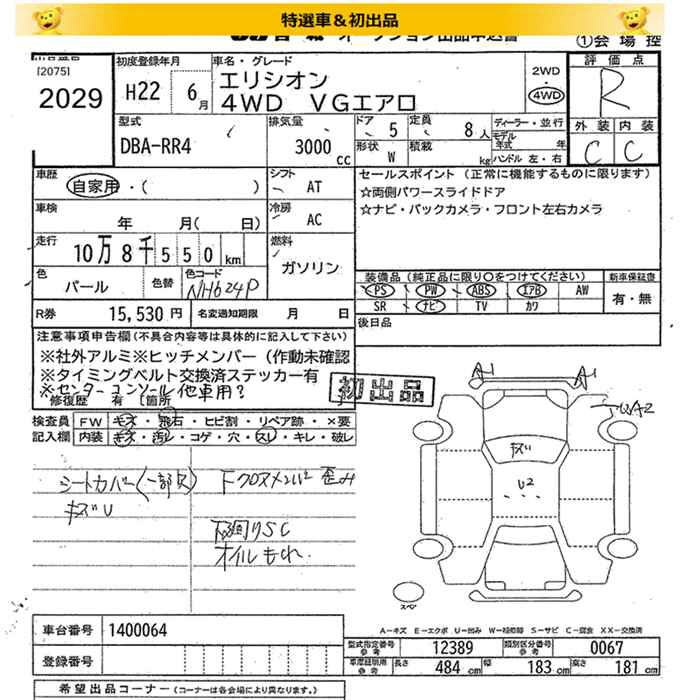 特選車＆初出品
オークション出品申込書
①会場控
[2075]
2029
初度登録年月
H22 6月
車名・グレード
エリシオン
4WD VGエアロ
2WD
4WD
評価点
R
外装 内装
C C
型式
DBA-RR4
排気量
3000cc
ドア 5
定員 8人
形状 W
積載 kg
ディーラー・並行
モデル年式 年
ハンドル 左・右
車歴
自家用・( )
シフト
AT
セールスポイント (正常に機能するものに限ります)
☆両側パワースライドドア
☆ナビ・バックカメラ・フロント左右カメラ
車検
年 月( 日)
冷房
AC
走行
10万8千550km
燃料
ガソリン
色
パール
色替
色コード
NH624P
装備品 (純正品に限り○をつけてください)
PS PW ABS エアB AW
SR ナビ TV カワ
新車保証書
有・無
R券 15,530円
名変週知期限 月 日
後日品
注意事項申告欄(不具合内容等は具体的に記入して下さい)
※社外アルミ※ヒッチメンバー（作動未確認
※タイミングベルト交換済ステッカー有
※センターコンソール他車用?
修復歴 有 [箇所
初出品
検査員 FW キズ・飛石・ヒビ割・リペア跡・×要
記入欄 内装 キズ・汚レ・コゲ・穴・スレ・キレ・破レ
シートカバー(一部欠)
キズU
下クロスメンバ 歪み
下廻りSC
オイルもれ.
A-1 A-1
キズ
U2
スペア
A－キズ E－エクボ U－凹み W－補修跡 S－サビ C－腐食 XX－交換済
車台番号 1400064
登録番号
型式指定番号 参考 12389
類別区分番号 参考 0067
車庫証明用 参考 長さ 484cm 幅 183cm 高さ 181cm
希望出品コーナー (コーナーは各会場により異なります。)